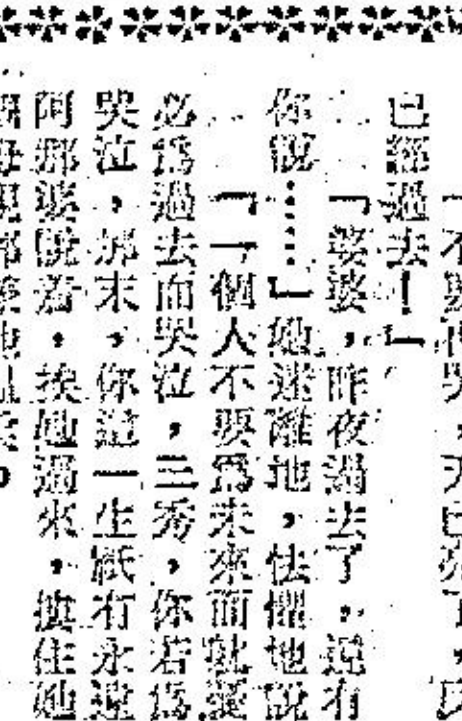 「不要再哭，天已亮了，
已經過去！」
「婆婆，昨夜過去了，還有
你說……」她迷離地，怯懼地說
「一個人不要爲未來而躭憂
必爲過去而哭泣，三秀，你若爲
哭泣，那末，你這一生祇有永遠
阿那婆說着，挨她過來，摟住她